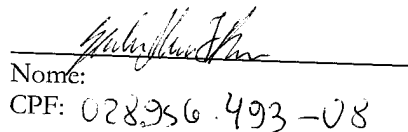 Nome:
CPF: 028956.493-08